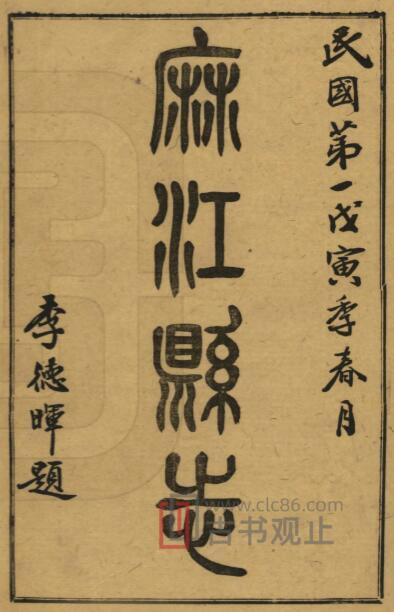 民國第一戊寅季春月
麻江縣志
季德暉題
www.clc86.com
古书观止